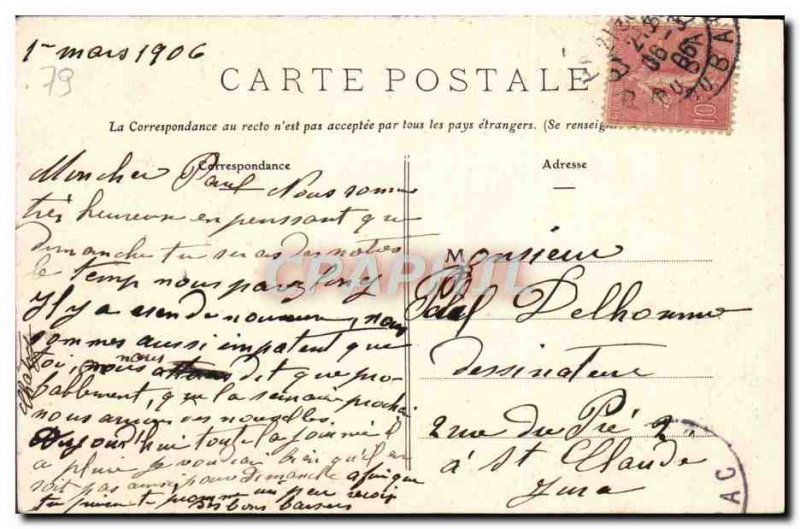 1er mars 1906
79
CARTE POSTALE
La Correspondance au recto n'est pas acceptée par tous les pays étrangers. (Se renseig
Correspondance
Adresse
Mon cher Paul Nous somme
très heureuse en penssant que
dimanche tu seras des notres
le temp nous parez long
Il y a rien de nouveau, nous
sommes aussi impatent que
toi, nous dit que pro-
bablement, que la semaine prochai
nous aurons des nouvelles.
Aujourd'hui toute la journée il
a pleut je voudrai bien qu'il en
soit pas ainsi pour dimanche afin que
tu puisse te promene un peu reçois
bons baisers
Monsieur
Paul Delhomme
dessinateur
2 rue du Pré 2
à St Claude
Jura
CPAPHIL
10